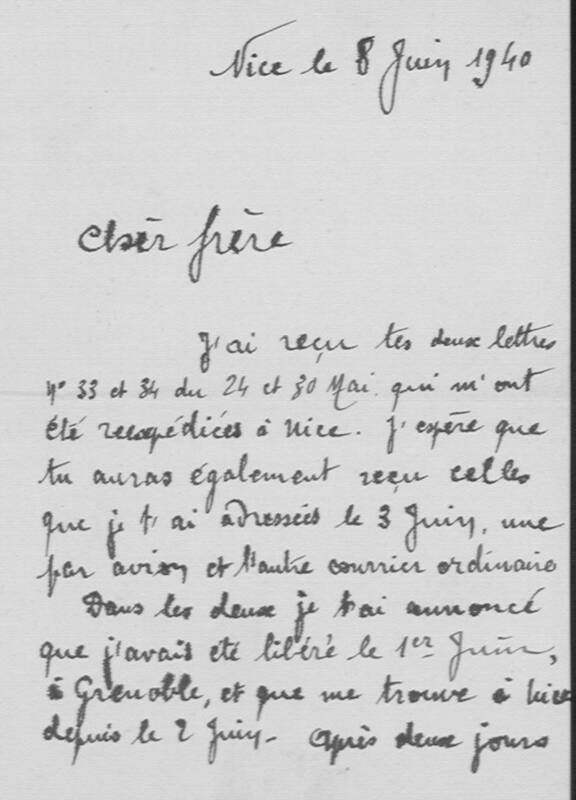 Nice le 8 Juin 1940
Cher frère
J'ai reçu tes deux lettres
N° 33 et 34 du 24 et 30 Mai qui m'ont
été reexpédiées à Nice. J'espère que
tu auras également reçu celles
que je t'ai adressées le 3 Juin, une
par avion et l'autre courrier ordinaire
Dans les deux je t'ai annoncé
que j'avais été libéré le 1er Juin,
à Grenoble, et que me trouve à Nice
depuis le 2 Juin. Après deux jours